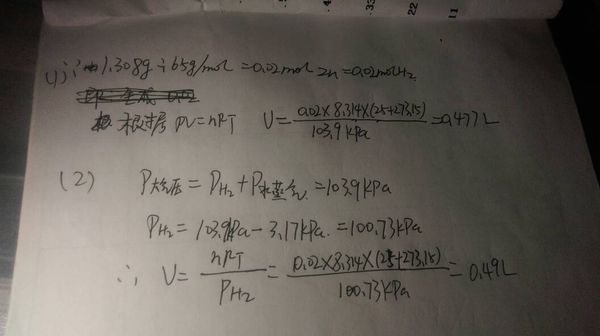 33
22
11
(1) 1.308g÷65g/mol=0.02mol Zn=0.02molH₂
根据 PV=nRT V=0.02×8.314×(25+273.15)/103.9kPa=0.477L
(2) P大气压=PH₂+P水蒸气=103.9kPa
PH₂=103.9kPa-3.17kPa=100.73kPa
∴ V=nRT/PH₂=0.02×8.314×(25+273.15)/100.73kPa=0.49L